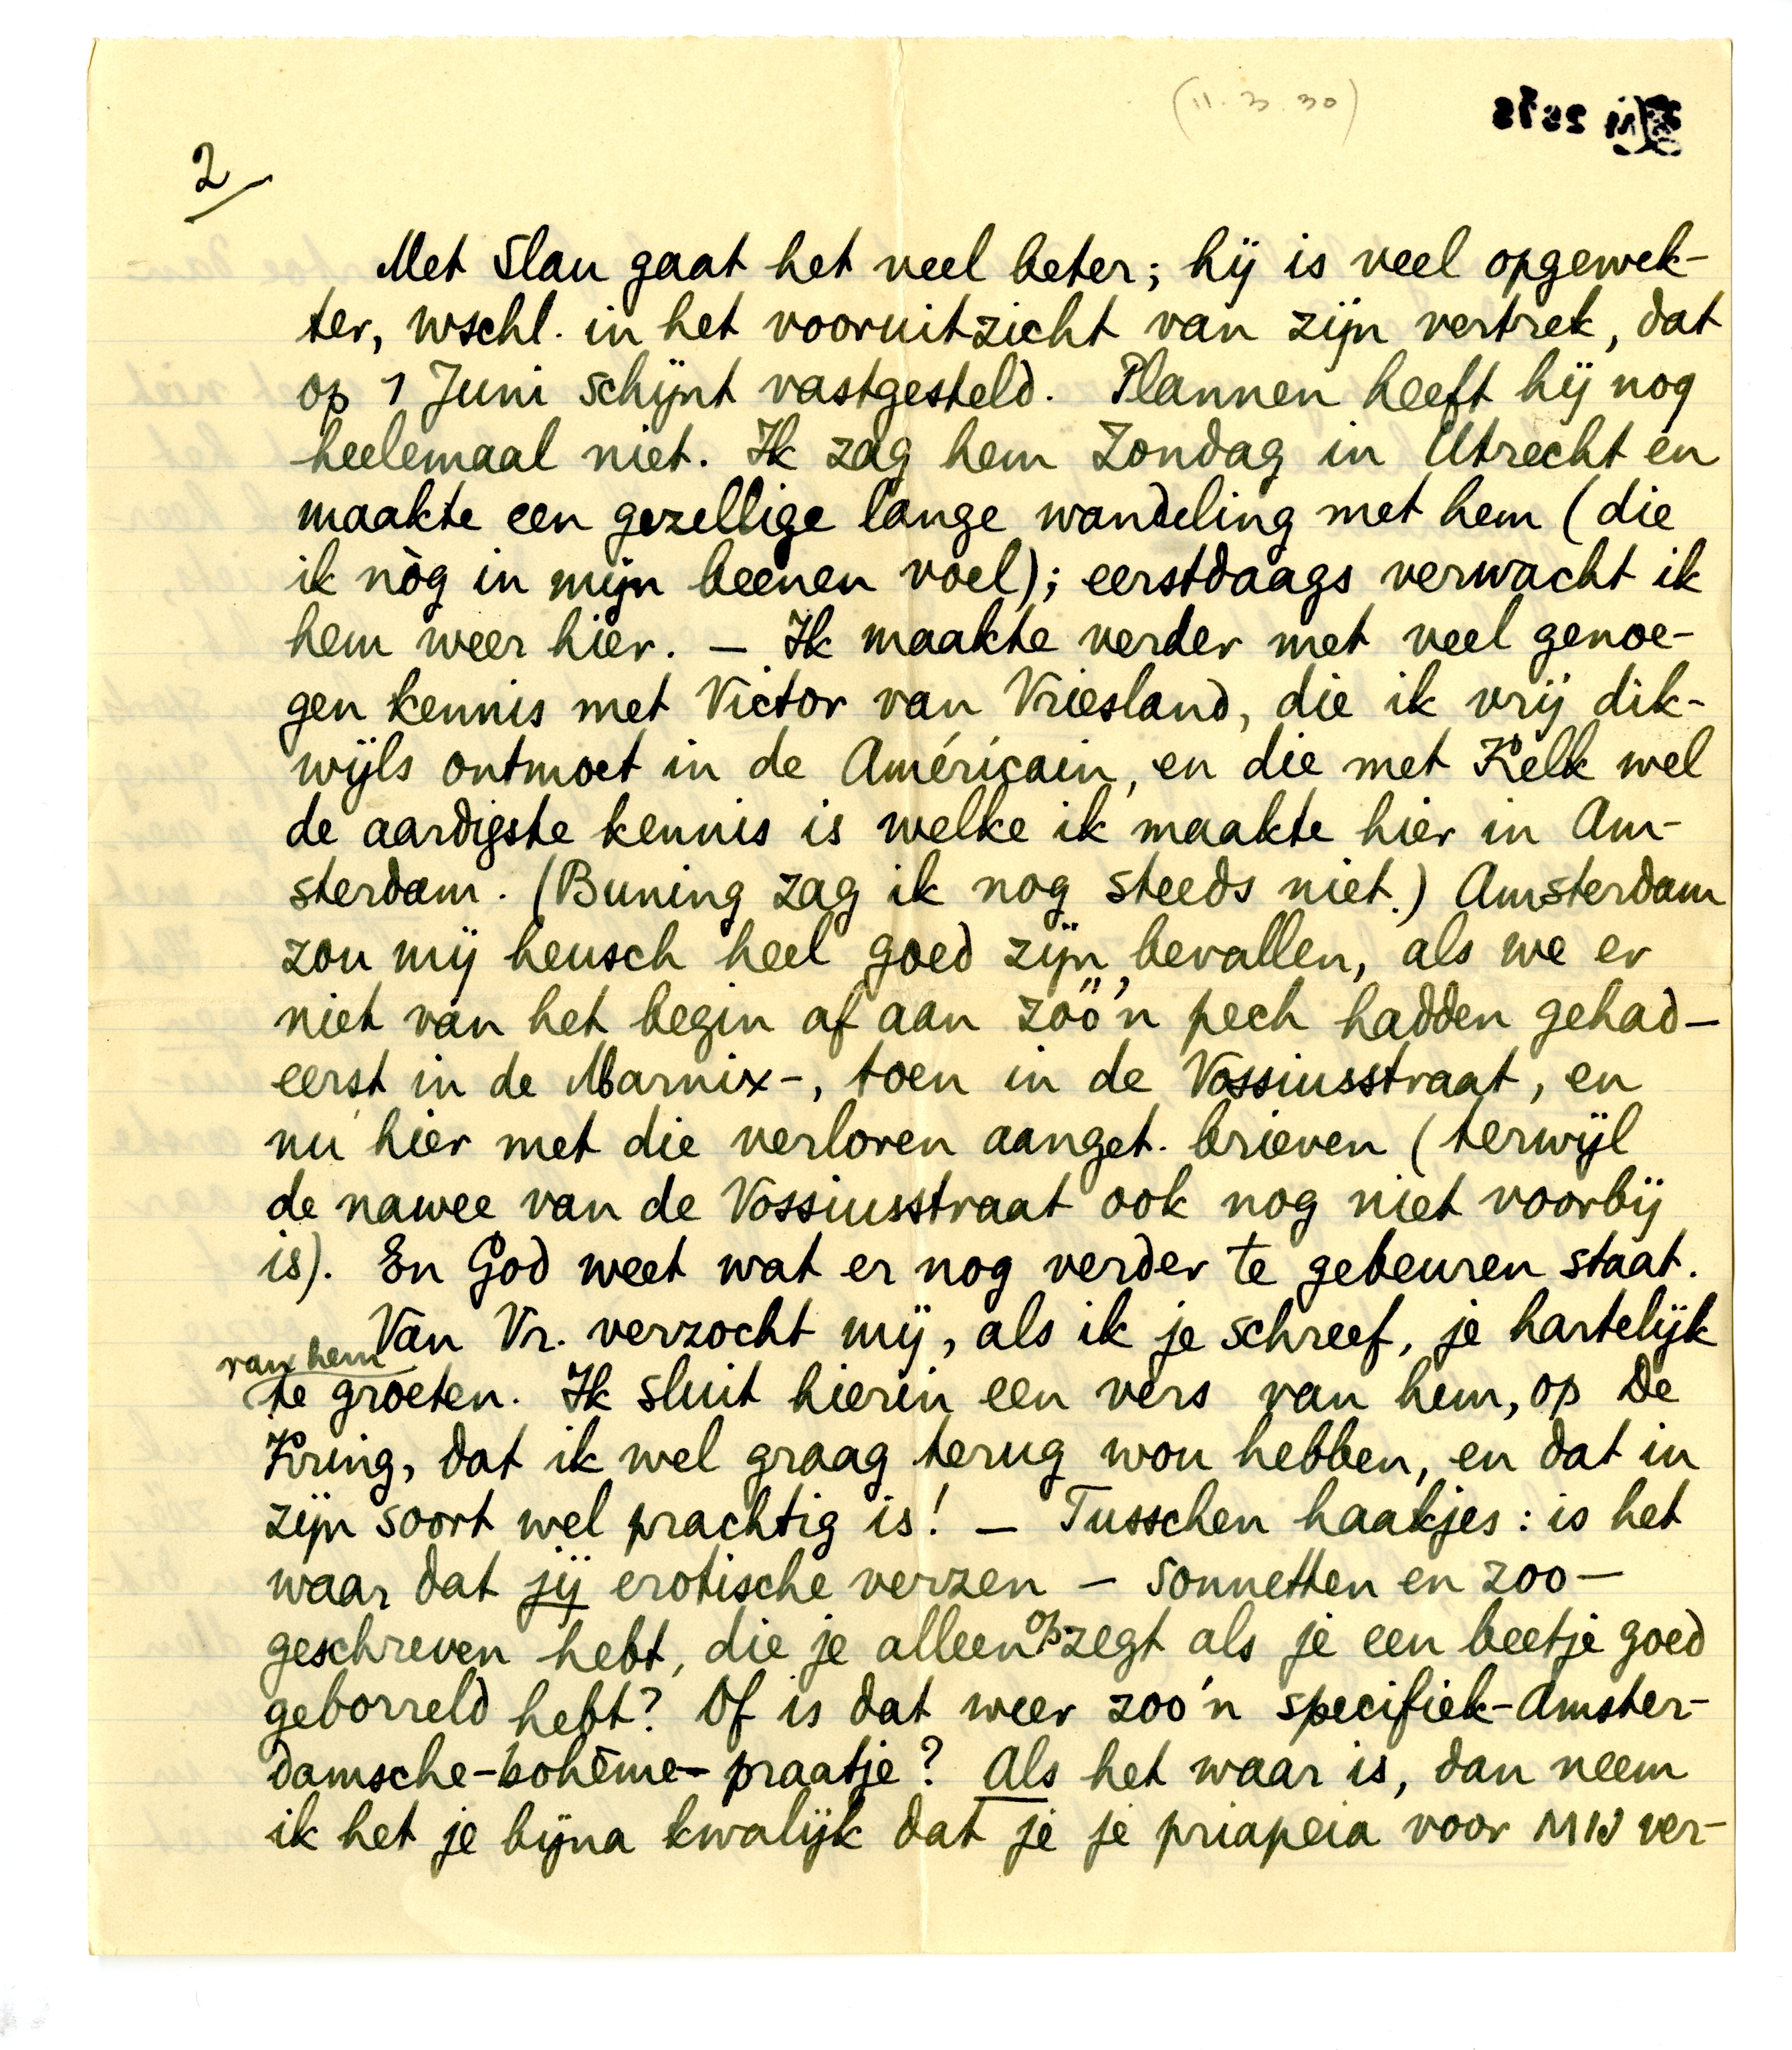 (11.3.30)
2
Met Slau gaat het veel beter; hij is veel opgewek-
ter, wschl. in het vooruitzicht van zijn vertrek, dat
op 1 Juni schijnt vastgesteld. Plannen heeft hij nog
heelemaal niet. Ik zag hem Zondag in Utrecht en
maakte een gezellige lange wandeling met hem (die
ik nòg in mijn beenen voel); eerstdaags verwacht ik
hem weer hier. — Ik maakte verder met veel genoe-
gen kennis met Victor van Vriesland, die ik vrij dik-
wijls ontmoet in de Américain, en die met Kelk wel
de aardigste kennis is welke ik maakte hier in Am-
sterdam. (Buning zag ik nog steeds niet.) Amsterdam
zou mij heusch heel goed zijn bevallen, als we er
niet van het begin af aan zöö'n pech hadden gehad —
eerst in de Marnix-, toen in de Vossiusstraat, en
nu hier met die verloren aanget. brieven (terwijl
de nawee van de Vossiusstraat ook nog niet voorbij
is). En God weet wat er nog verder te gebeuren staat.
Van Vr. verzocht mij, als ik je schreef, je hartelijk
van hem
te groeten. Ik sluit hierin een vers van hem, op De
Kring, dat ik wel graag terug wou hebben, en dat in
zijn soort wel prachtig is! — Tusschen haakjes: is het
waar dat jij erotische verzen — sonnetten en zoo —
geschreven hebt, die je alleen opzegt als je een beetje goed
geborreld hebt? Of is dat weer zoo'n specifiek-Amster-
damsche-bohême-praatje? Als het waar is, dan neem
ik het je bijna kwalijk dat je je priapeia voor MIJ ver-